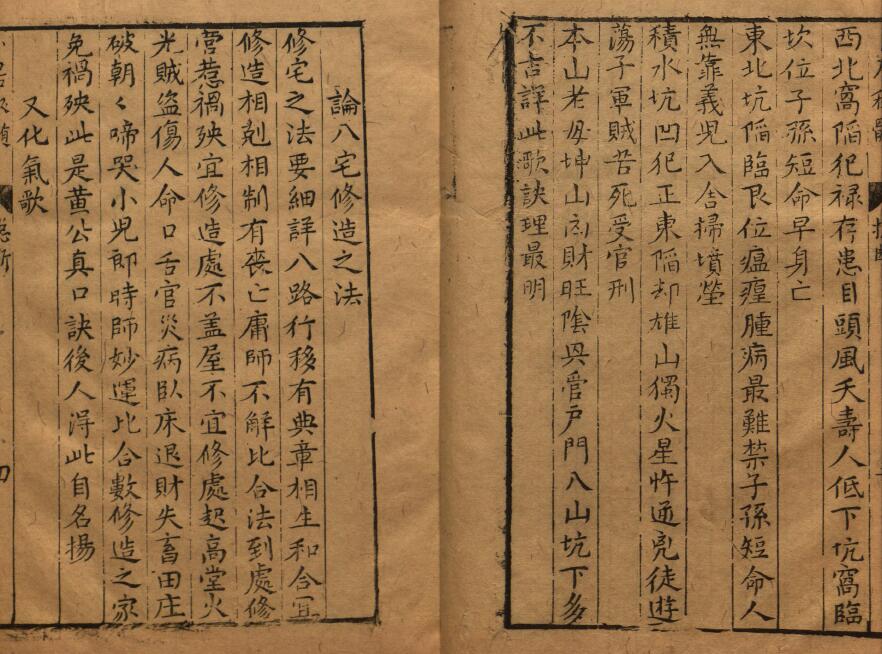 西北窩陷犯禄存患目頭風夭壽人低下坑窩臨
坎位子孫短命早身亡
東北坑陷臨艮位瘟瘴腫病最難禁子孫短命人
無靠義兒入舍掃墳塋
積水坑凹犯正東陷却雄山獨火星忤逆兇徒遊
蕩子軍賊苦死受官刑
本山老母坤山高財旺陰興管户門八山坑下多
不吉詳此歌訣理最明
論八宅修造之法
修宅之法要細詳八路行移有典章相生和合宜
修造相剋相制有喪亡庸師不解比合法到處修
营惹禍殃宜修造處不盖屋不宜修處起高堂火
光賊盗傷人命口舌官災病臥床退財失畜田庄
破朝〻啼哭小兒郎時師妙運比合數修造之家
免禍殃此是黄公真口訣後人得此自名揚
又化氣歌